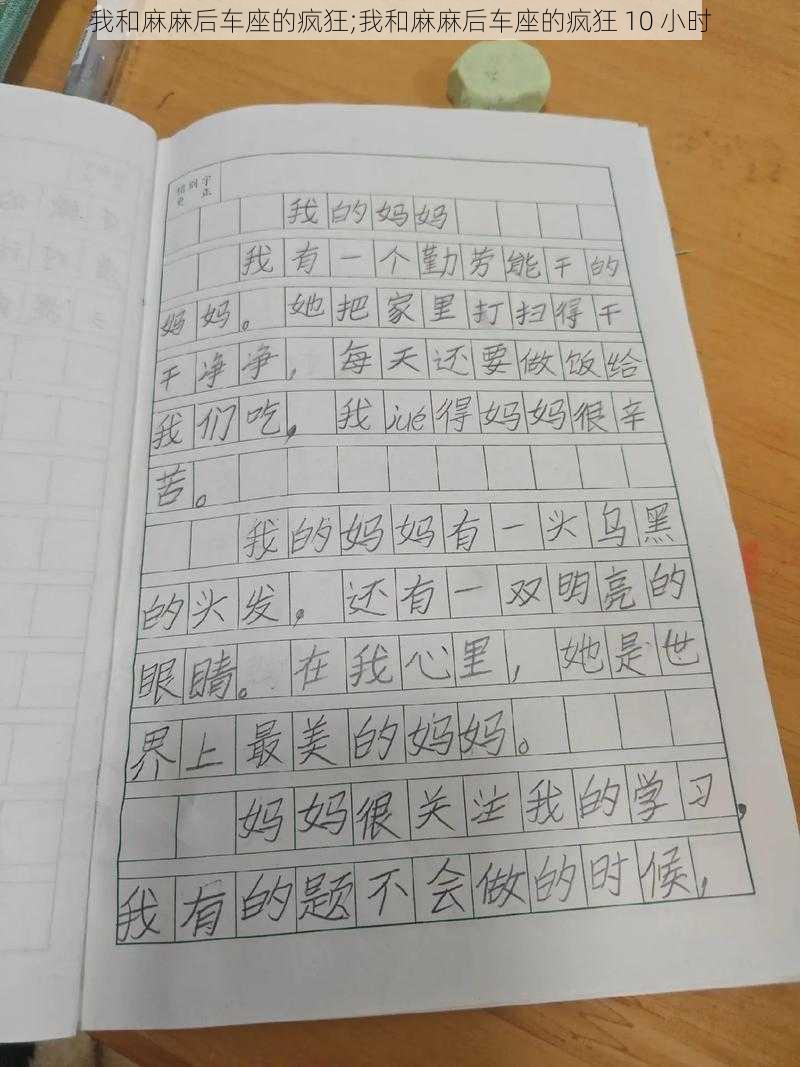 我和麻麻后车座的疯狂;我和麻麻后车座的疯狂 10 小时
我的妈妈
我有一个勤劳能干的
妈妈。她把家里打扫得干
干净净，每天还要做饭给
我们吃，我jué得妈妈很辛
苦。
我的妈妈有一头乌黑
的头发，还有一双明亮的
眼睛。在我心里，她是世
界上最美的妈妈。
妈妈很关注我的学习，
我有的题不会做的时候，